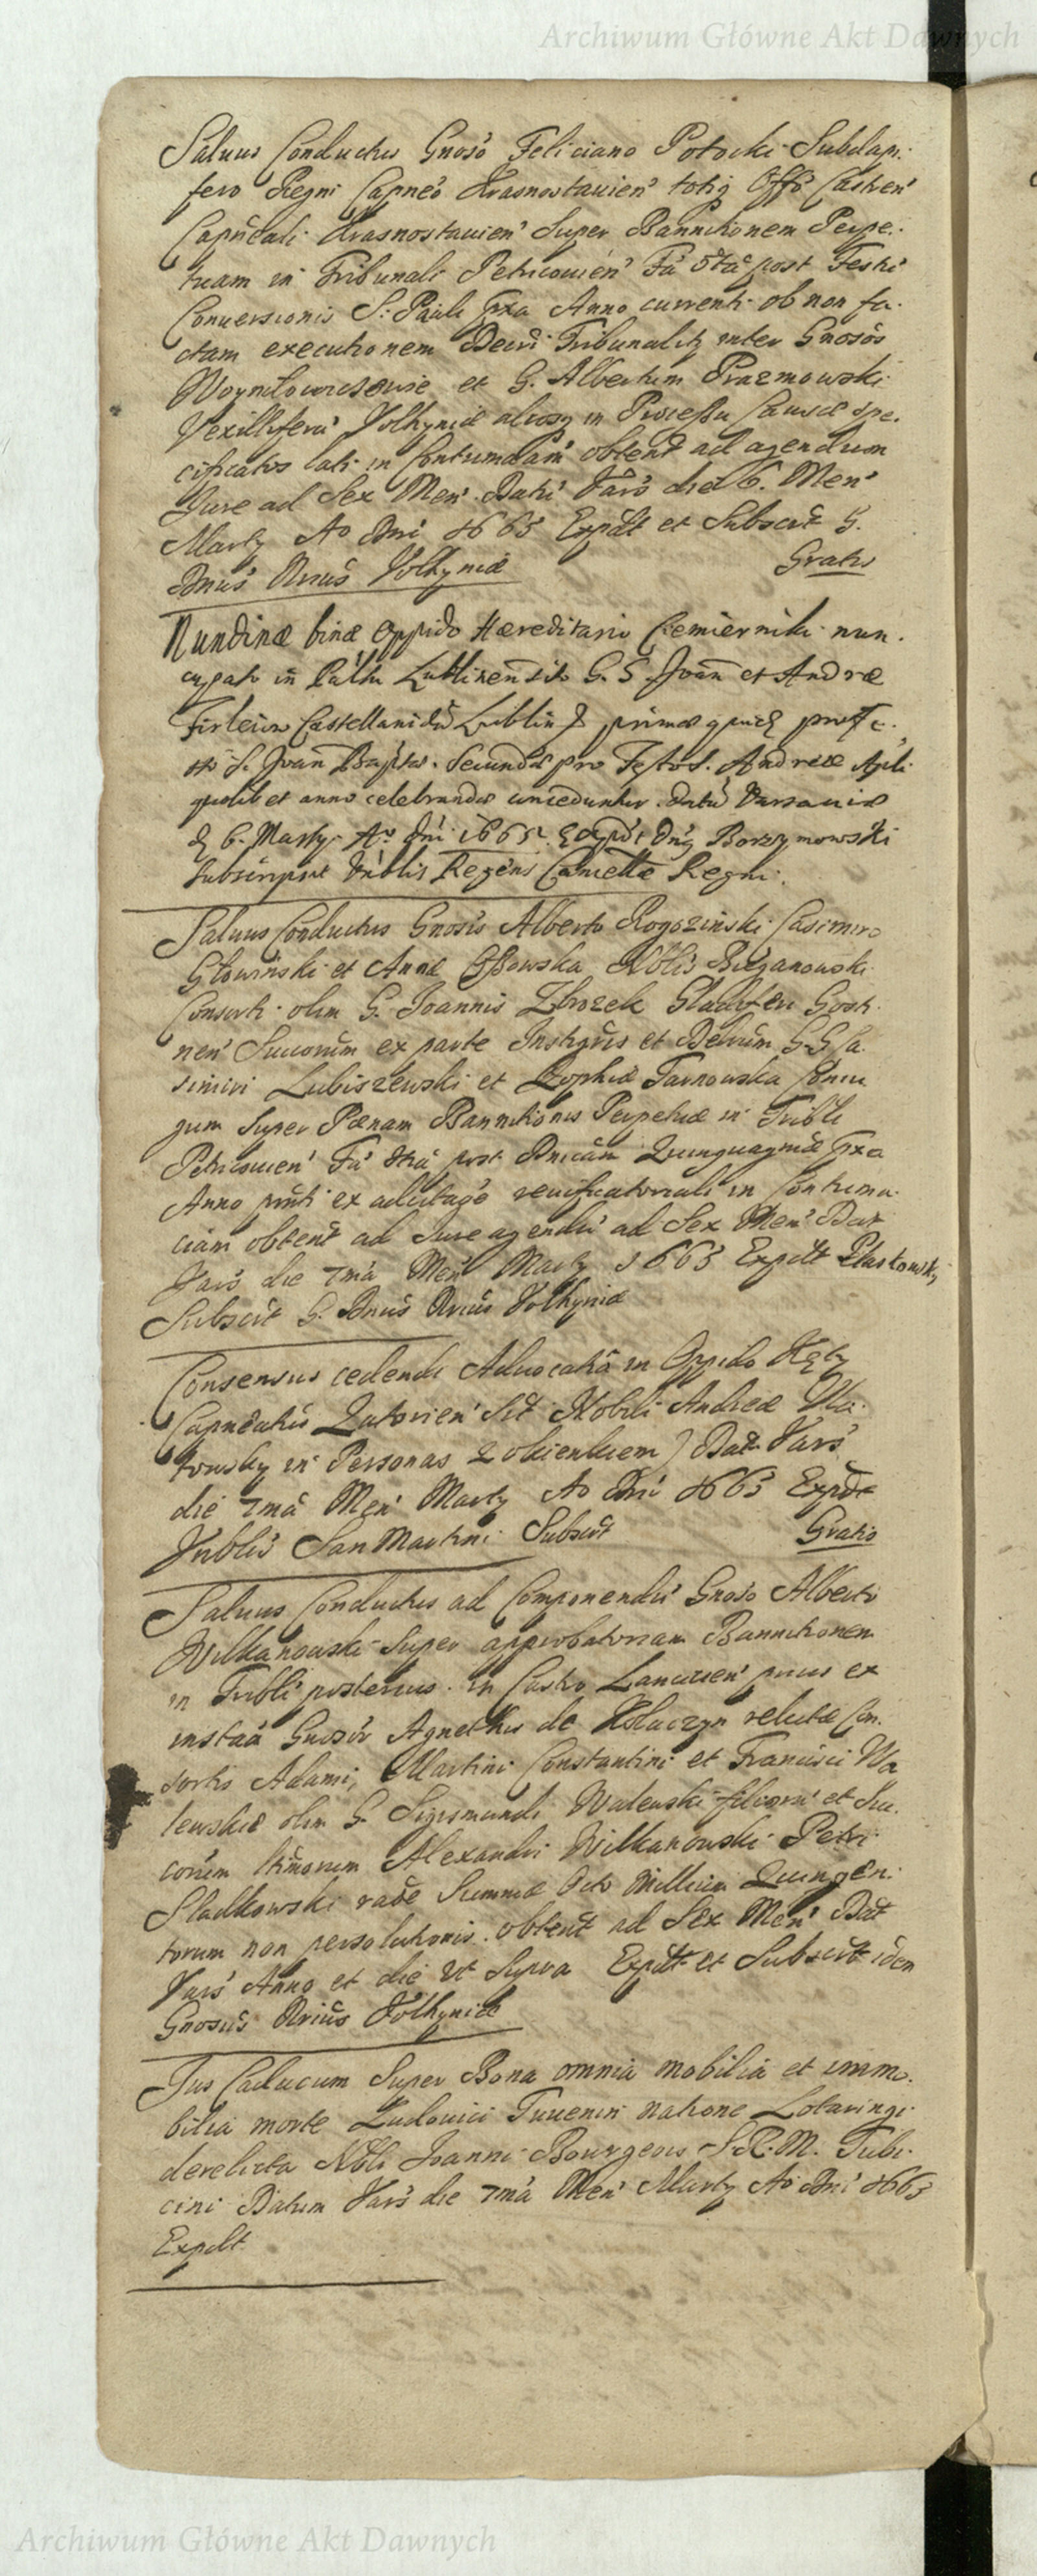 Archiwum Główne Akt Dawnych
Salvus Conductus Gnoso Feliciano Potocki Subdapi-
fero Regni Capneo Krasnostavien totiq Offo Castren
Capneali Krasnostavien Super Bannitionem Perpe-
tuam in Tribunali Petricovien Fa post Festi
Conversionis S. Pauli Fxa Anno currenti ob non fa-
ctam executionem Decri Tribunalitz inter Gnosos
et G. Albertum Prazmowski
Vexilliferu Volhyniæ aliosq in Processu Causæ spe-
cificatos lati in Contumaam obtent ad agendum
Jure ad Sex Men. Dati Vars die 6. Men
Marty Ao Dni 1665 Expdt et Subscrt G.
Dnus Rrius Volhyniæ Gratis
Nundinæ binæ Oppido Hæreditario Czemierniki nun-
cupato in Paltu Lublinen sito G. G. Joan et Andreæ
Firleiow Castellanidu Lublin primæ quid pro Fe-
sto S. Joan Baptæ. Secundæ pro Festo S. Andreæ Apli
quolibet anno celebrandæ conceduntur. Datu Varsaviæ
d 6. Marty. Ao Dni 1665. Expdt Dnq Borzymowski
Subscripsit Vnblis Regens Cancellæ Regni.
Salvus Conductus Gnosis Alberto Rogozinski Casimiro
Głowinski et Annæ Ossowska Nblis Bieganowski
Consorti olim G. Joannis Zbrozek Gladiferi Gosti-
nen Succorum ex parte Instigris et Delrum G. G. Ca-
simiri Lubiszewski et Zophiæ Tarnowska Coniu
gum Super Pænam Bannitionis Perpetuæ in Tribli
Petricovien Fa post Dnicam Quinquagmæ Fxa
Anno pnti ex adcitage verificatoriali in Contuma-
ciam obtent ad Jure agendu ad Sex Men Dat
Vars die 7ma Men Marty 1665 Expdt
Subscrt G. Dnus Rrius Volhyniæ
Consensus cedendi Advocatia in Oppido Kęty
Capneatus Zatorien sit Nobili Andreæ
in Personas Dat Vars
die 7ma Men Marty Ao Dni 1665 Expdt
Vnblis San Martini Subscrt Gratis
Salvus Conductus ad Componendu Gnoso Alberto
Wilkanowski Super approbatoriam Bannitionem
in Tribli posterius. in Castro Lancicien prius ex
instaa Gnosor Agnethis de relictæ Con-
sortis Adami, Martini Constantini et Francisci Wa
lewskie olim G. Sigismundi Walewski filiorū et Suc-
corum Alexandri Wilkanowski Petri
Sladkowski raoe Summæ Octo Millium Quingen-
torum non persolutionis obtent ad Sex Men Dat
Vars Anno et die ut Supra Expdt et Subscrt idem
Gnosus Rrius Volhyniæ
Jus Caducum Super Bona omnia mobilia et immo-
bilia morte Ludovici Iuvenin natione Lotaringi
derelicta Nbli Joanni Bourgeois S. R. M. Tubi-
cini Datum Vars die 7ma Men Marty Ao Dni 1665
Expdt
Archiwum Główne Akt Dawnych